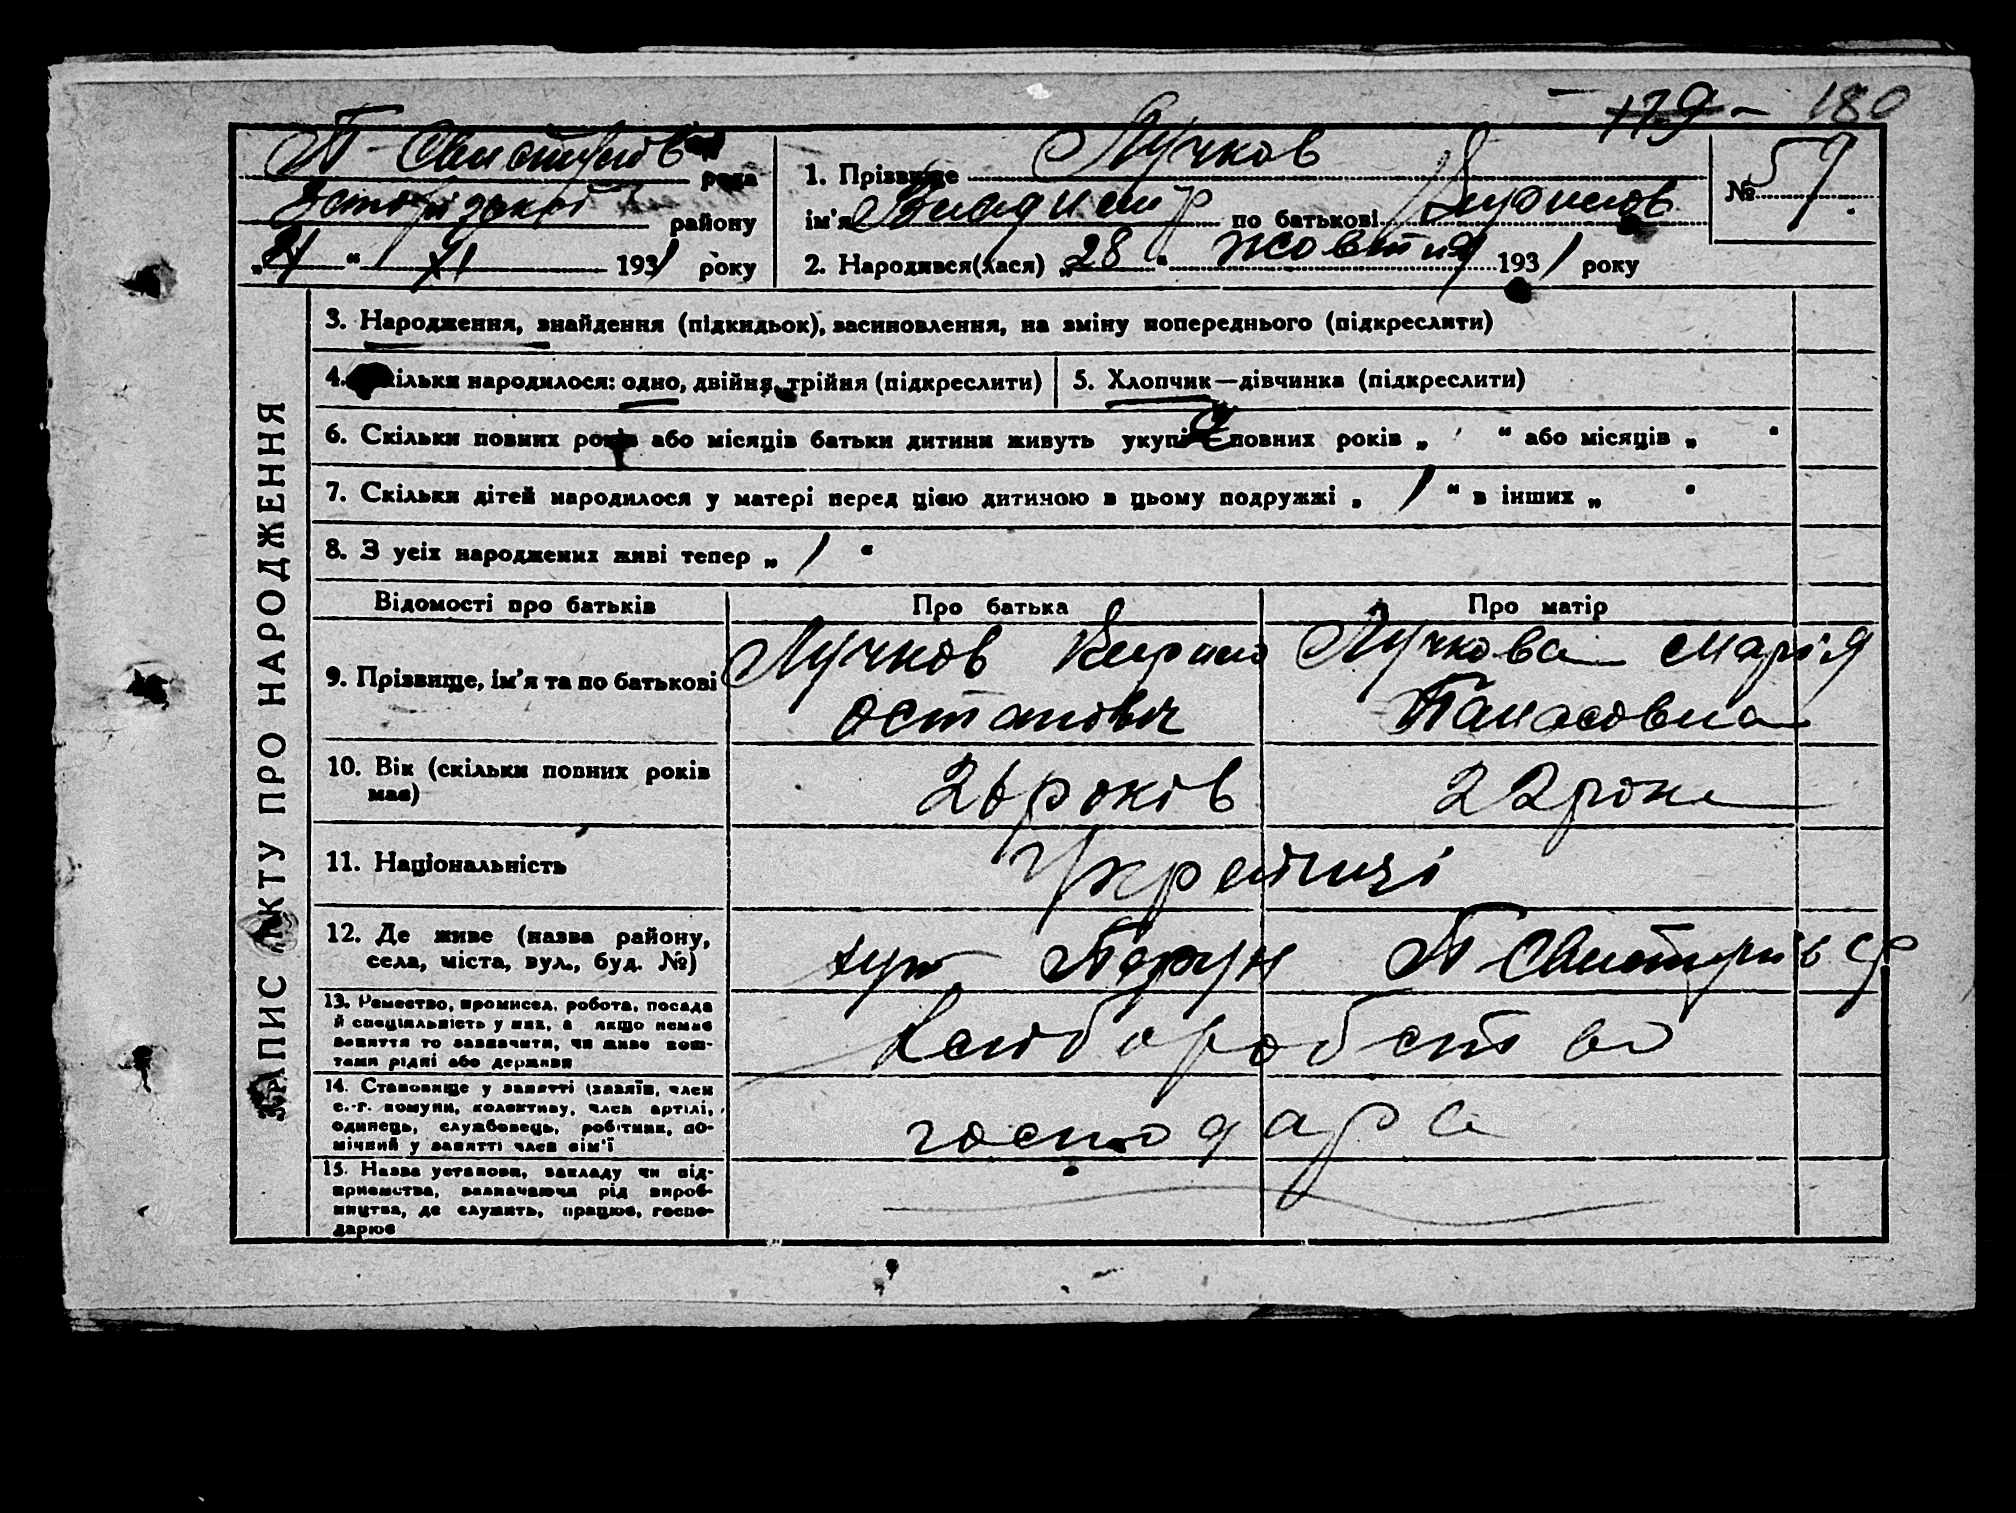 179 – 180
П-Свистунів рада
району
" XI 1931 року
1. Прізвище Лучков
ім'я Владимир по батькові Кирилов
№ 59.
2. Народився(лася) „28" жовтня 1931 року
ЗАПИС АКТУ ПРО НАРОДЖЕННЯ
3. Народження, знайдення (підкидьок), засиновлення, на зміну попереднього (підкреслити)
4. Скільки народилося: одно, двійня, трійня (підкреслити)
5. Хлопчик—дівчинка (підкреслити)
6. Скільки повних років або місяців батьки дитини живуть укупі повних років „ " або місяців „ "
7. Скільки дітей народилося у матері перед цією дитиною в цьому подружжі „ 1 " в інших „ "
8. З усіх народжених живі тепер „ 1 "
Відомості про батьків Про батька Про матір
9. Прізвище, ім'я та по батькові
Лучков Кирило
Остапович
Лучкова Марія
Панасовна
10. Вік (скільки повних років
має)
26 років
22 роки
11. Національність
Українці
12. Де живе (назва району,
села, міста, вул., буд. №)
хут П-Свистунів с/р
13. Ремество, промисел, робота, посада
й спеціяльність у них, а якщо немає
заняття то зазначити, чи живе кош-
тами рідні або держави
Хліборобство
14. Становище у занятті (хазяїн, член
с.-г. комуни, колективу, член артілі,
одинець, службовець, робітник, по-
мічний у занятті член сім'ї
господарі
15. Назва установи, закладу чи під-
приємства, зазначаючи рід вироб-
ництва, де служить, працює, госпо-
дарює